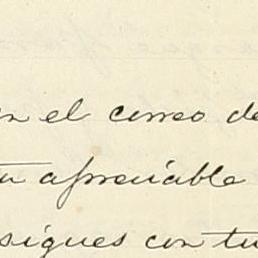 en el correo de
tu apreciable
sigues con tu